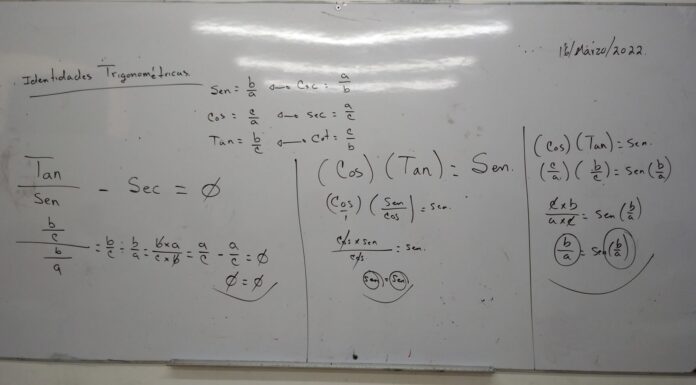 16/Marzo/2022.
Identidades Trigonométricas.
Sen = b/a ↔ Csc = a/b
Cos = c/a ↔ sec = a/c
Tan = b/c ↔ Cot = c/b
Tan/Sen - Sec = ∅
b/c / b/a = b/c ÷ b/a = b×a/c×b = a/c - a/c = ∅
∅ = ∅
(Cos) (Tan) = Sen.
(Cos/1) (Sen/cos) = sen.
cos × sen/cos = sen.
sen = sen
(Cos) (Tan) = Sen.
(c/a) (b/c) = Sen (b/a)
c×b/a×c = Sen (b/a)
b/a = Sen (b/a)